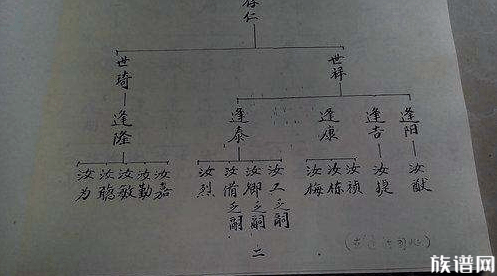 存仁
世琦
世祥
逢隆
逢泰
逢康
逢吉
逢阳
汝为
汝聪
汝敏
汝勤
汝嘉
汝烈
汝备乏嗣
汝御乏嗣
汝工乏嗣
汝梅
汝栋
汝祯
汝提
汝猷
二
族谱网